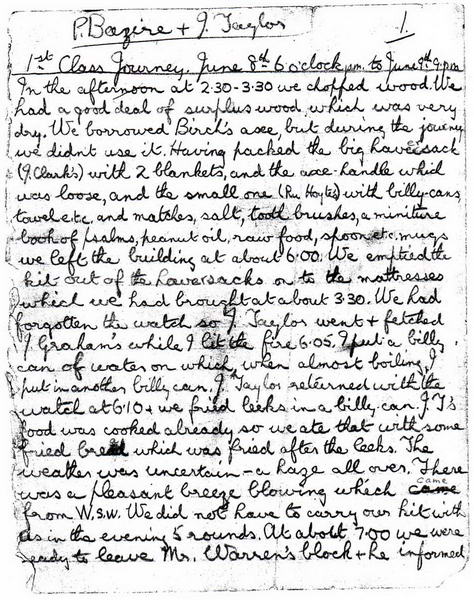 P. Bazire + J. Taylor 1.
1st Class Journey. June 8th 6 o'clock pm. to June 9th. 9. pm
In the afternoon at 2.30-3.30 we chopped wood. We
had a good deal of surplus wood which was very
dry. We borrowed Birch's axe, but during the journey
we didn't use it. Having packed the big haversack
(J. Clark's) with 2 blankets, and the axe-handle which
was loose, and the small one (Ru. Hoyte's) with billy cans,
towel etc. and matches, salt, tooth brushes, a miniture
book of psalms, peanut oil, raw food, spoon etc. mugs
we left the building at about 6.00. We emptied the
kit out of the haversacks on to the mattresses
which we had brought at about 3.30. We had
forgotten the watch so J. Taylor went + fetched
J Graham's while I lit the fire 6.05. I put a billy
can of water on which, when almost boiling, I
put in another billy can. J. Taylor returned with the
watch at 6.10 + we fried leeks in a billy can. J. T's
food was cooked already so we ate that with some
fried bread which was fried after the leeks. The
weather was uncertain - a haze all over. There
was a pleasant breeze blowing which came came
from W.S.W. We did not have to carry our kit with
us in the evening 5 rounds. At about 7.00 we were
ready to leave Mr. Warren's block + he informed